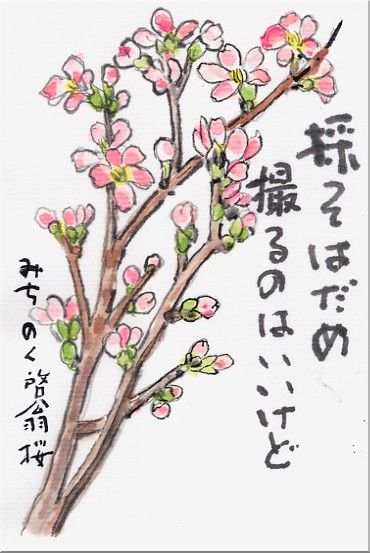 採ってはだめ
撮るのはいいけど
みちのく啓翁桜